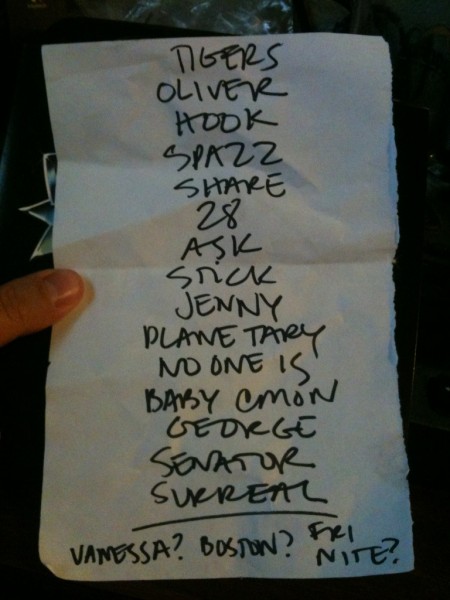 TIGERS
OLIVER
HOOK
SPAZZ
SHARE
28
ASK
STICK
JENNY
PLANETARY
NO ONE IS
BABY CMON
GEORGE
SENATOR
SURREAL
VANESSA? BOSTON? FRI NITE?